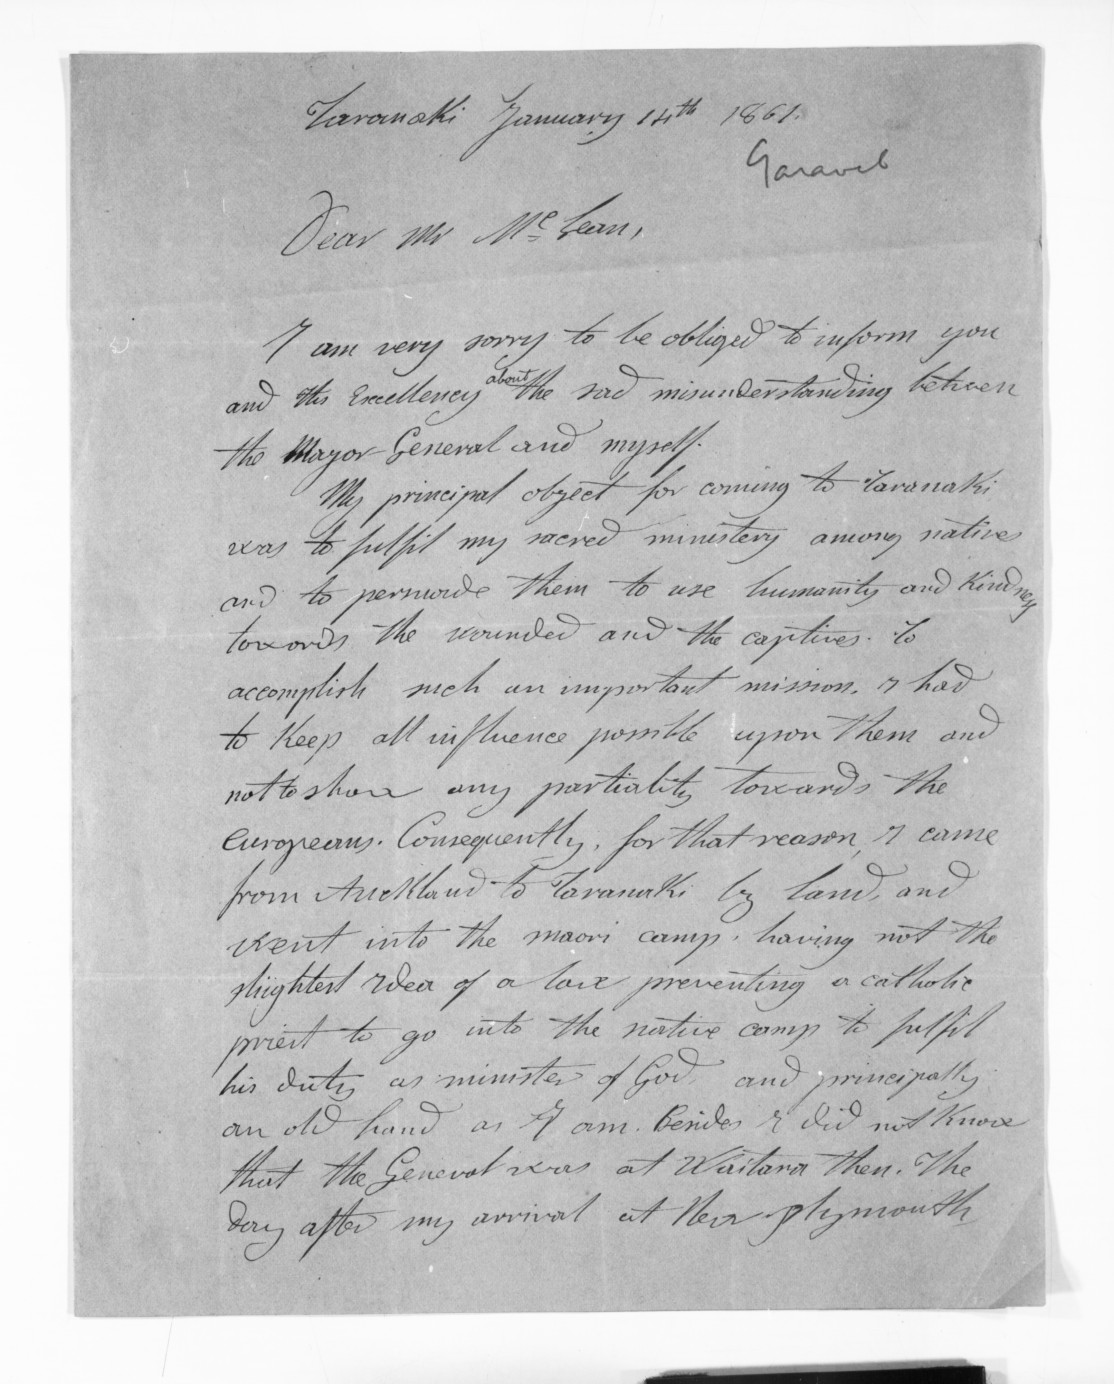 Taranaki January 14th 1861.
Garavel
Dear Mr Mc Lean,
I am very sorry to be obliged to inform you
and His Excellency about the sad misunderstanding between
the Mayor General and myself.
My principal object for coming to Taranaki
was to fulfil my sacred ministery among natives
and to persuade them to use humanity and Kindness
towards the wounded and the captives. To
accomplish such an important mission. I had
to Keep all influence possible upon them and
not to show any partiality towards the
Europeans. Consequently, for that reason, I came
from Auckland to Taranaki by land, and
went into the maori camp. having not the
slightest Idea of a law preventing a catholic
priest to go into the native camp to fulfil
his duty as minister of God, and principally
an old hand as I am. Besides I did not Know
that the General was at Waitara then. The
day after my arrival at New plymouth